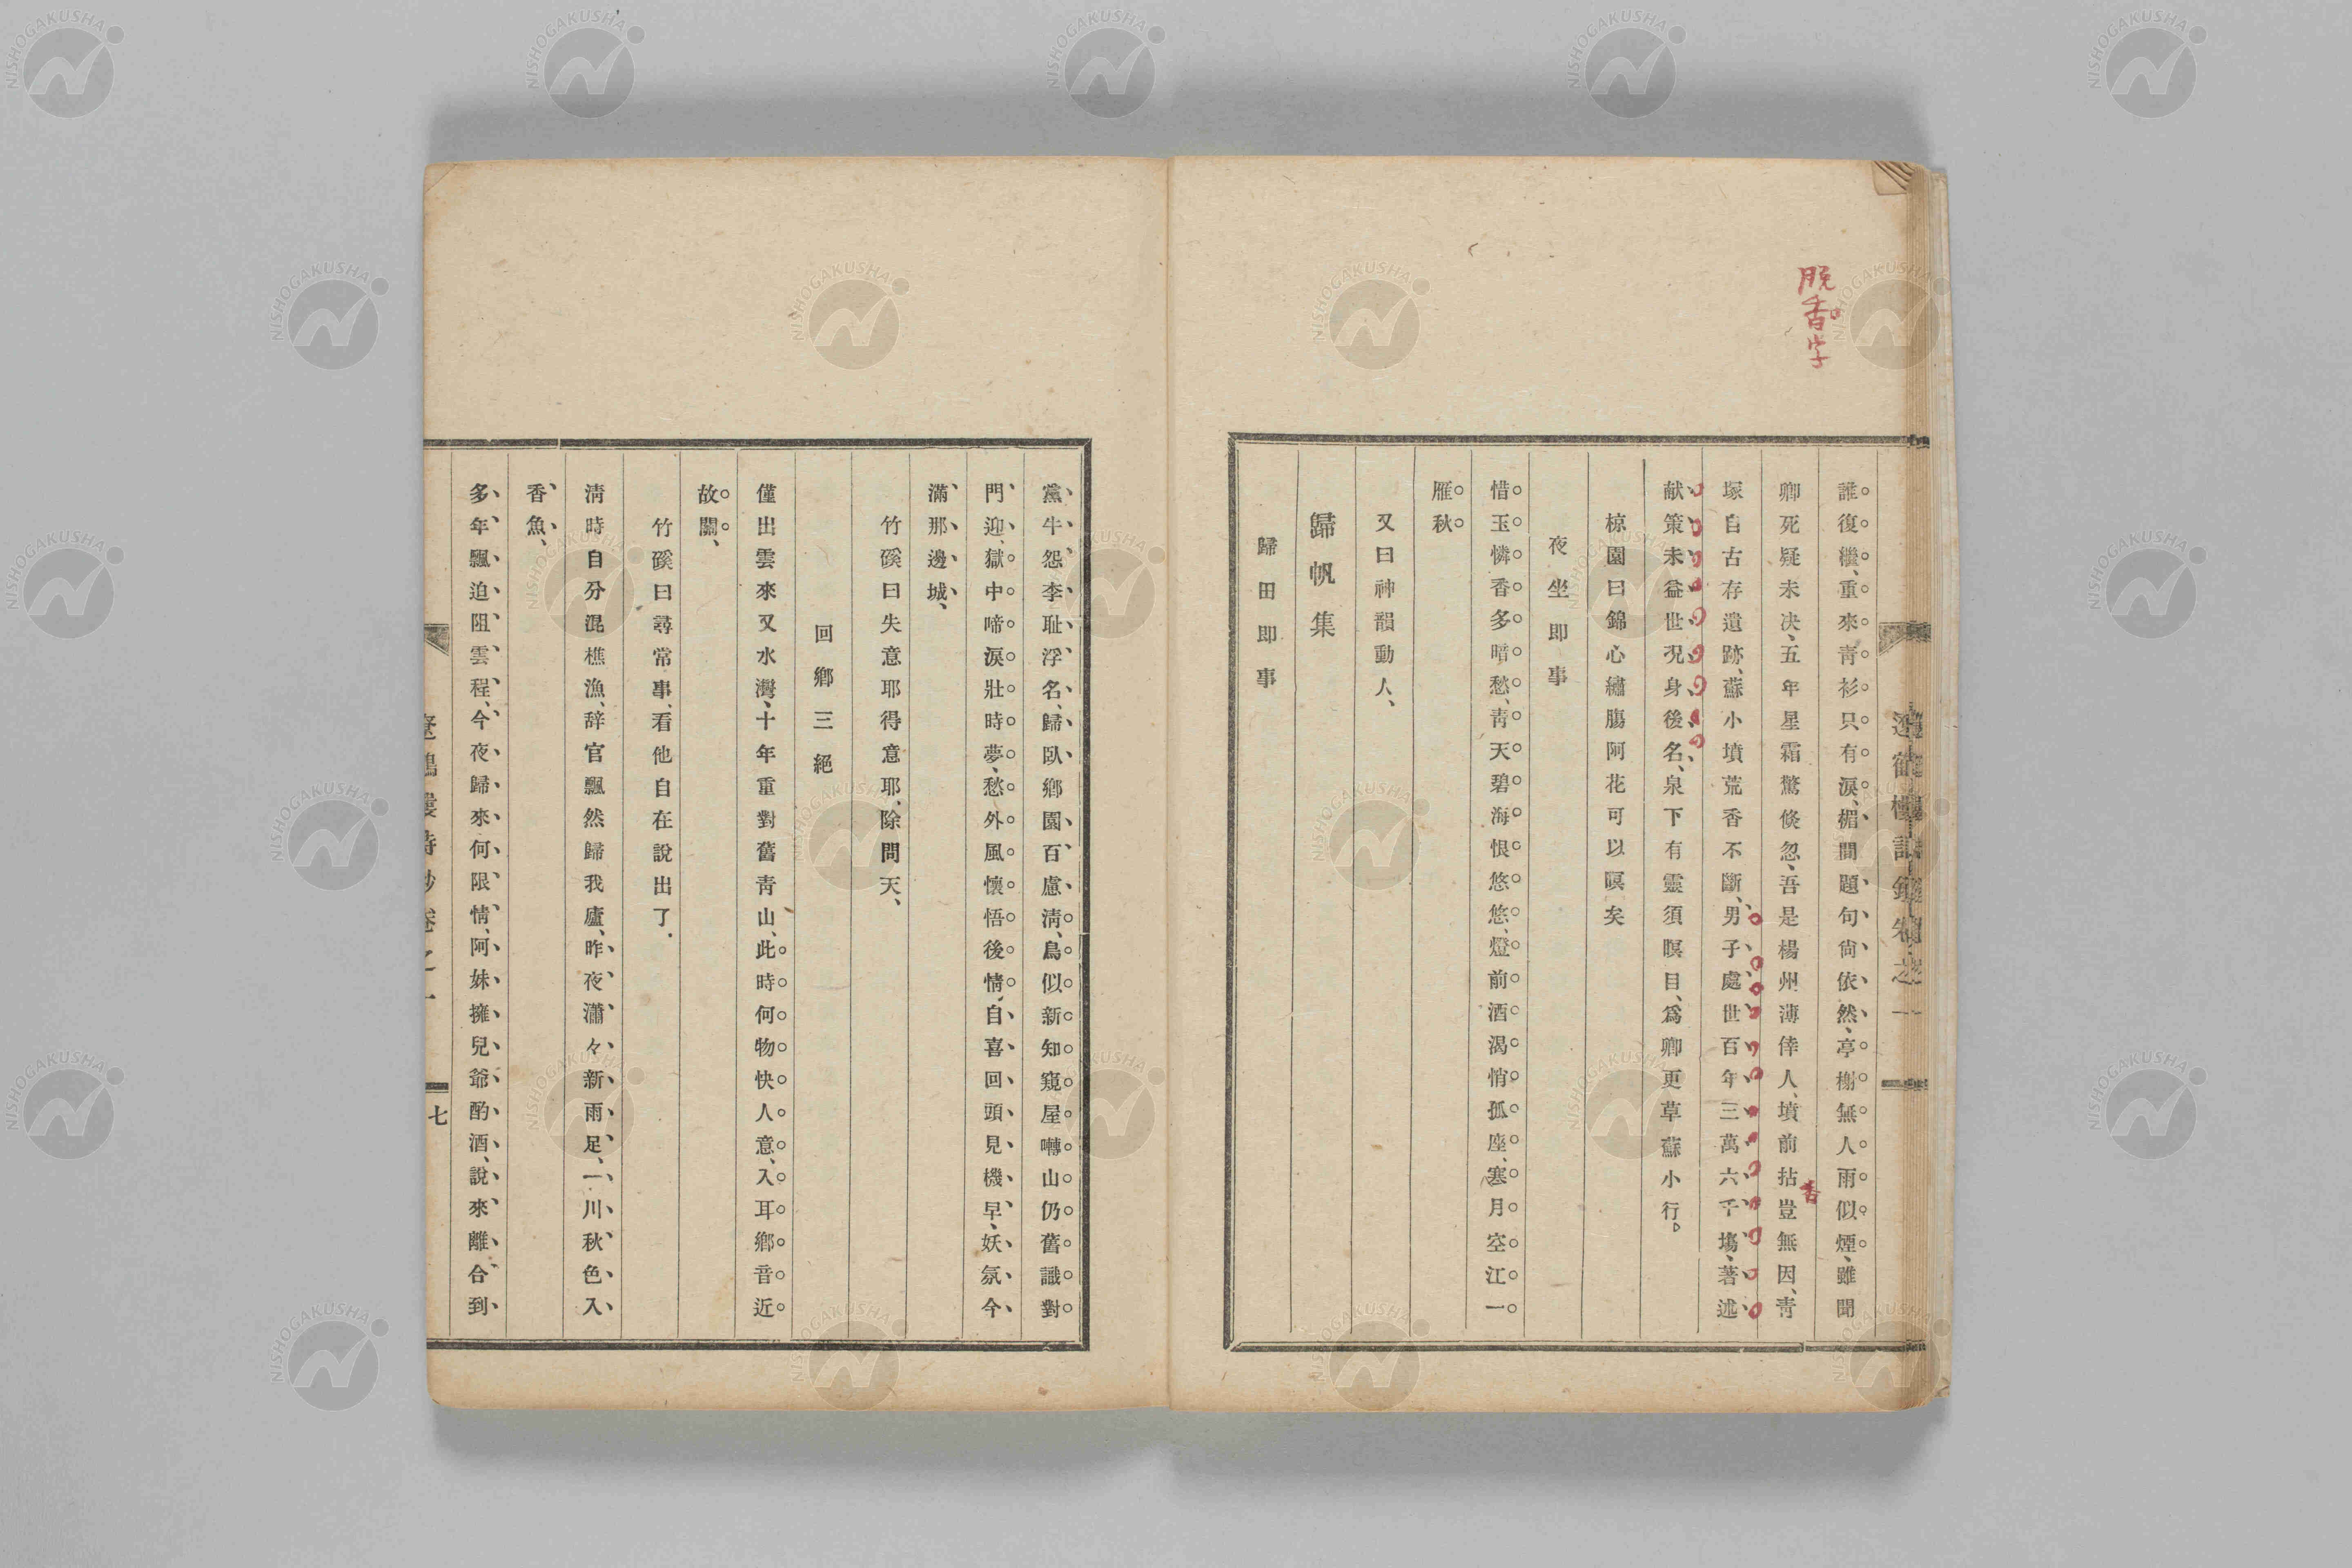 脱香字
誰復繼、重來靑衫只有淚、楣間題句尙依然、亭榭無人雨似煙、雖聞
卿死疑未决、五年星霜驚倏忽、吾是楊州薄倖人、墳前拈豈無因、靑
香
塚自古存遺跡、蘇小墳荒香不斷、男子處世百年三萬六千塲、著述
献策未益世況身後名、泉下有靈須暝目、爲卿更草蘇小行。
椋園曰錦心繡膓阿花可以暝矣
夜坐即事
惜玉憐香多暗愁、靑天碧海恨悠悠、燈前酒渴悄孤座、塞月空江一
雁秋
又曰神韻動人、
歸帆集
歸田即事
黨牛怨李耻浮名、歸臥鄕園百慮淸、鳥似新知窺屋囀山仍舊識對
門迎、獄中啼淚壯時夢、愁外風懷悟後情、自喜回頭見機早、妖氛今
滿那邊城、
竹磎曰失意耶得意耶、除問天、
回鄕三絕
僅出雲來又水灣、十年重對舊靑山、此時何物快人意、入耳鄕音近
故關、
竹磎曰尋常事、看他自在說出了.
淸時自分混樵漁、辞官飄然歸我廬、昨夜瀟々新雨足、一川秋色入
香魚、
多年飄迫阻雲程、今夜歸來何限情、阿妹擁兒爺酌酒、說來離合到
七